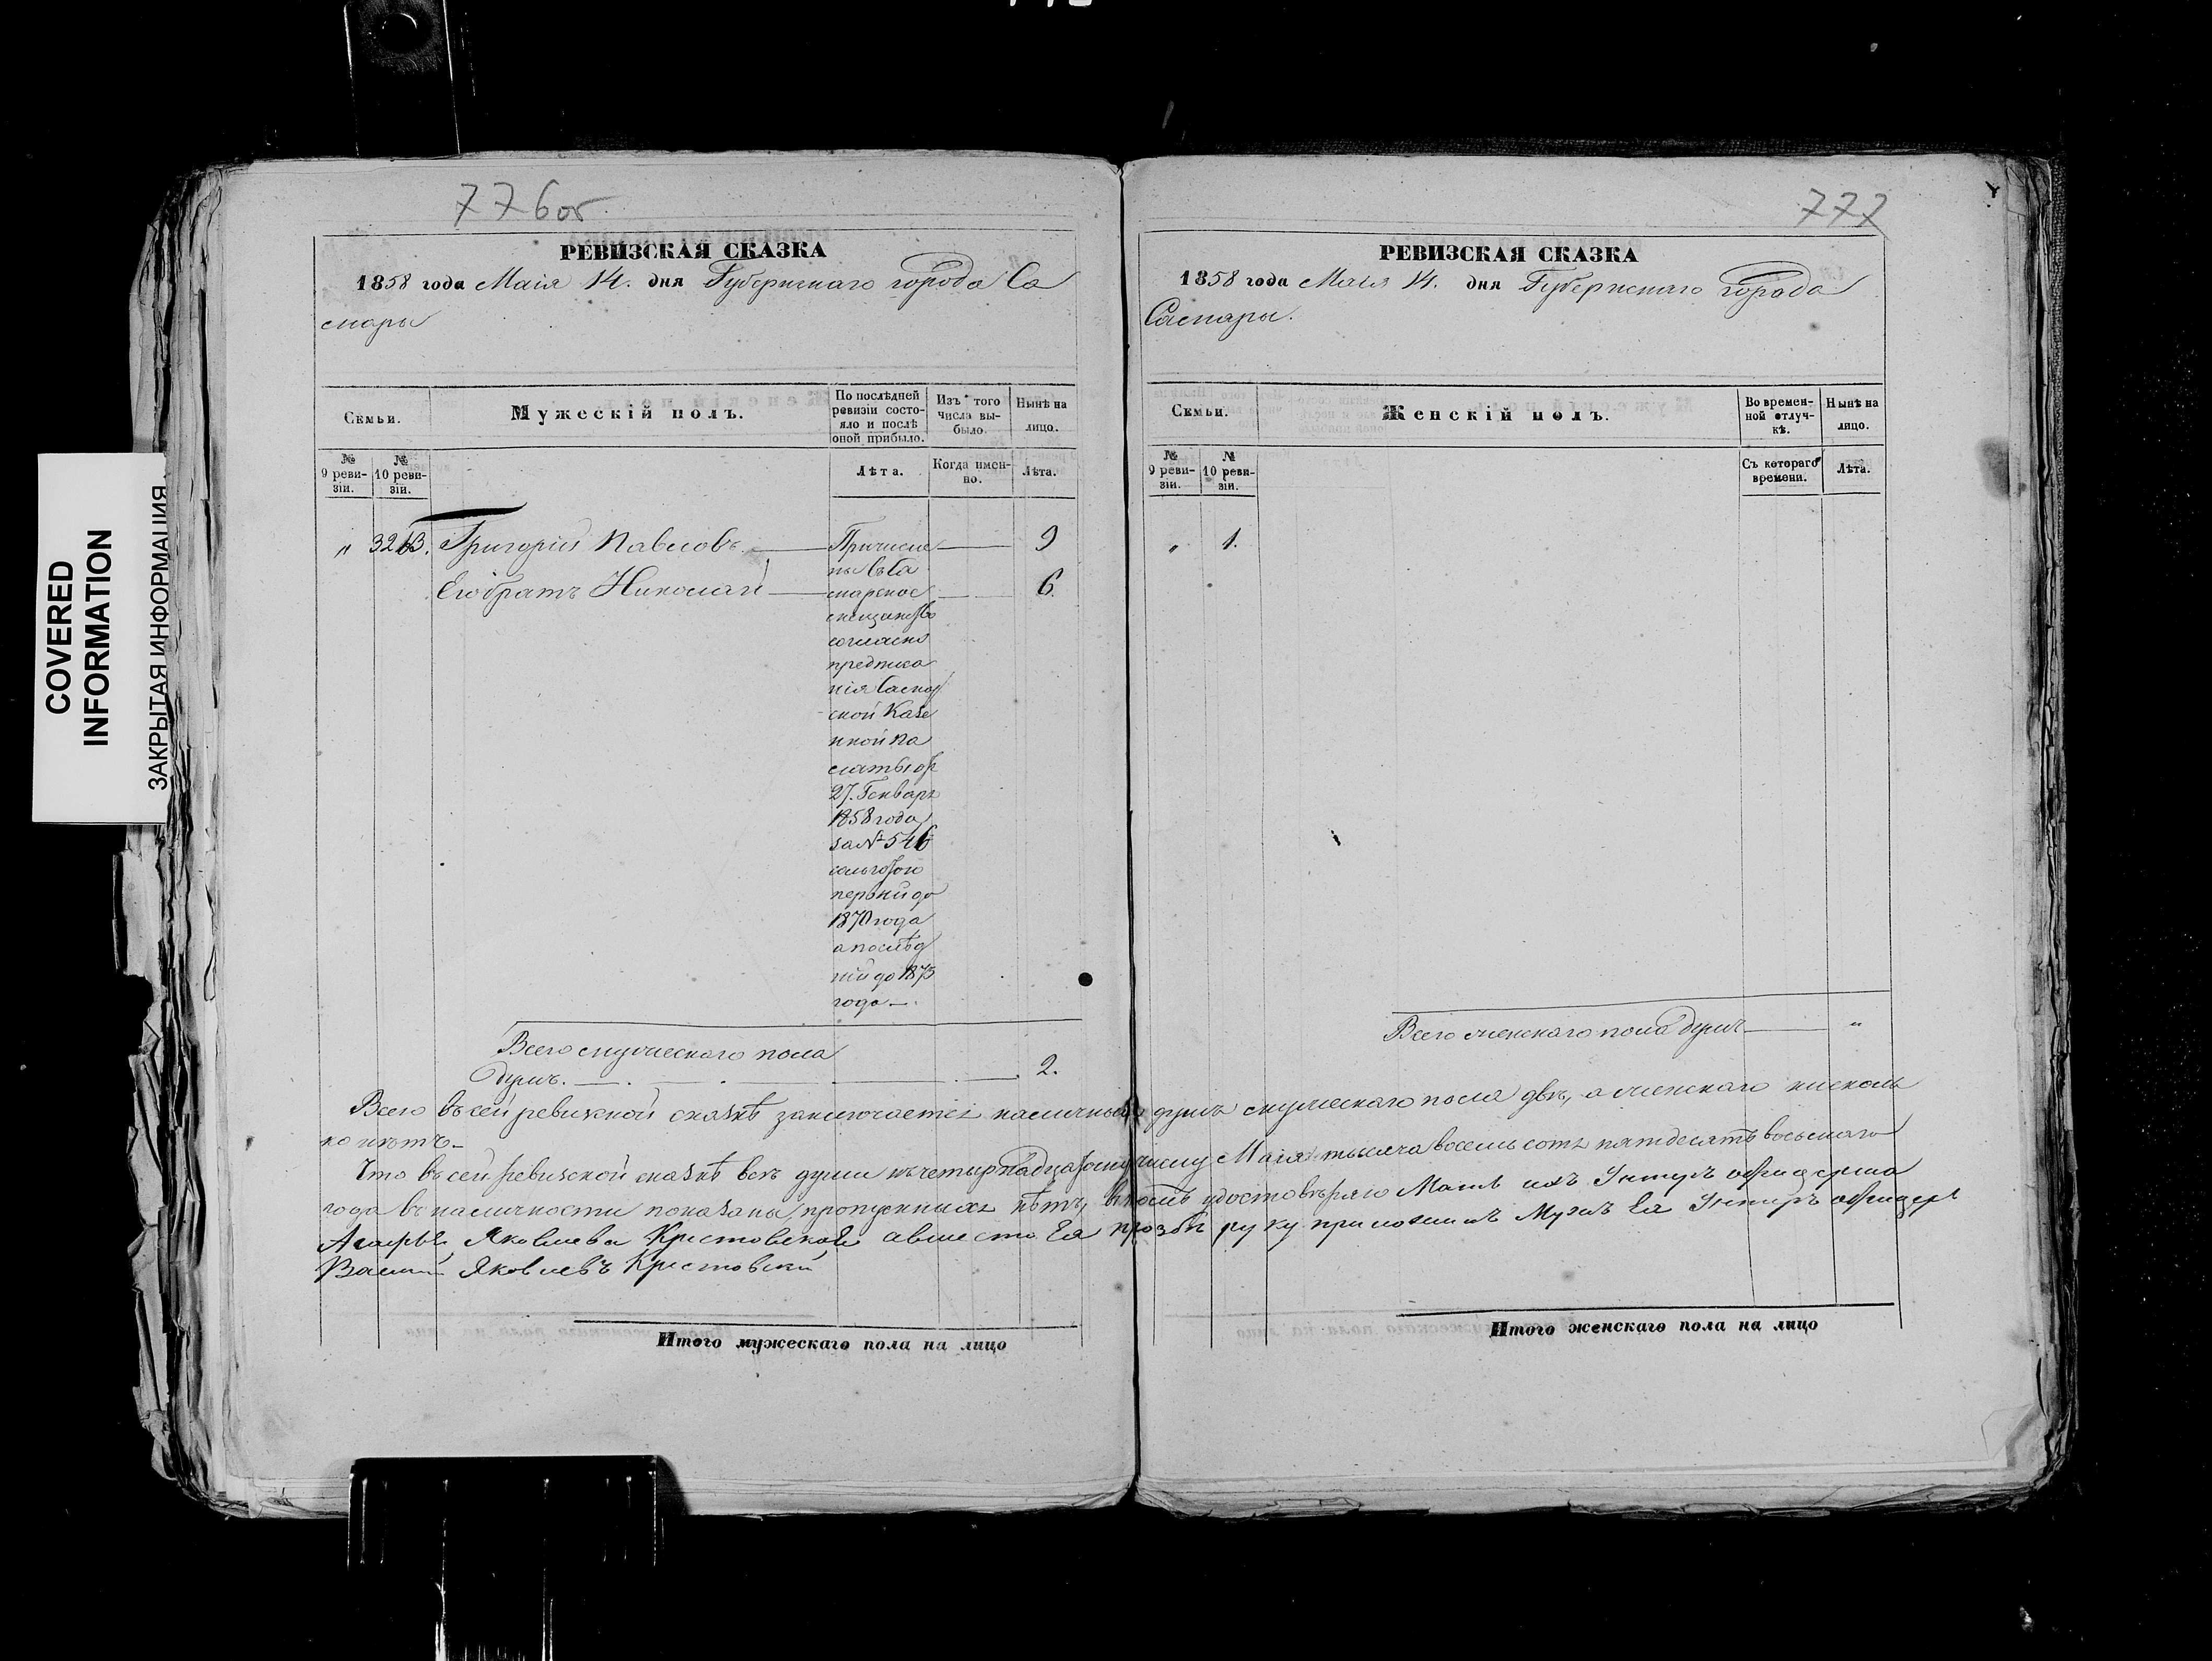 776об.
РЕВИЗСКАЯ СКАЗКА
1858 года Маія 14. дня Губернскаго города Са
мары
Семьи.
Мужескій полъ.
По послѣдней ревизіи состояло и послѣ оной прибыло.
Изъ того числа выбыло.
Нынѣ на лицо.
№ 9 ревизіи.
№ 10 ревизіи.
Лѣта.
Когда именно.
Лѣта.
" Григорій Павловъ. 9
Его братъ Николай 6.
Причисле
ны въ Са
марское
мещанство
согласно
предписа
нія Самар
ской Казе
нной Па
латы от
27. Генваря
1858 года
за № 546
льготою
первый до
1870 года
а послѣд
ній до 1873
года.
Всего мужескаго пола
душъ. 2.
Всего въ сей ревизкой сказкѣ заключается наличныхъ душъ мужескаго пола двѣ, а женскаго нисколь
ко нѣтъ.
Что въ сей ревизской сказкѣ всѣ души къ четырнадцатому числу Маія тысяча восемь сотъ пятдесятъ восьмаго
года въ наличности показаны, пропускныхъ нѣтъ, въ томъ удостовѣряю Мать ихъ Унтеръ офицерша
Яковлева Крестовская а вместо Ея прозбѣ руку приложилъ Мужъ Ея Унтиръ офицеръ
Яковлевъ Крестовскій
Итого мужескаго пола на лицо
777
РЕВИЗСКАЯ СКАЗКА
1858 года Маія 14. дня Губернскаго города
Самары.
Семьи.
Женскій полъ.
Во временной отлучкѣ.
Нынѣ на лицо.
№ 9 ревизіи.
№ 10 ревизіи.
Съ котораго времени.
Лѣта.
" 1.
Всего женскаго пола душъ "
Итого женскаго пола на лицо
COVERED
INFORMATION
ЗАКРЫТАЯ ИНФОРМАЦИЯ